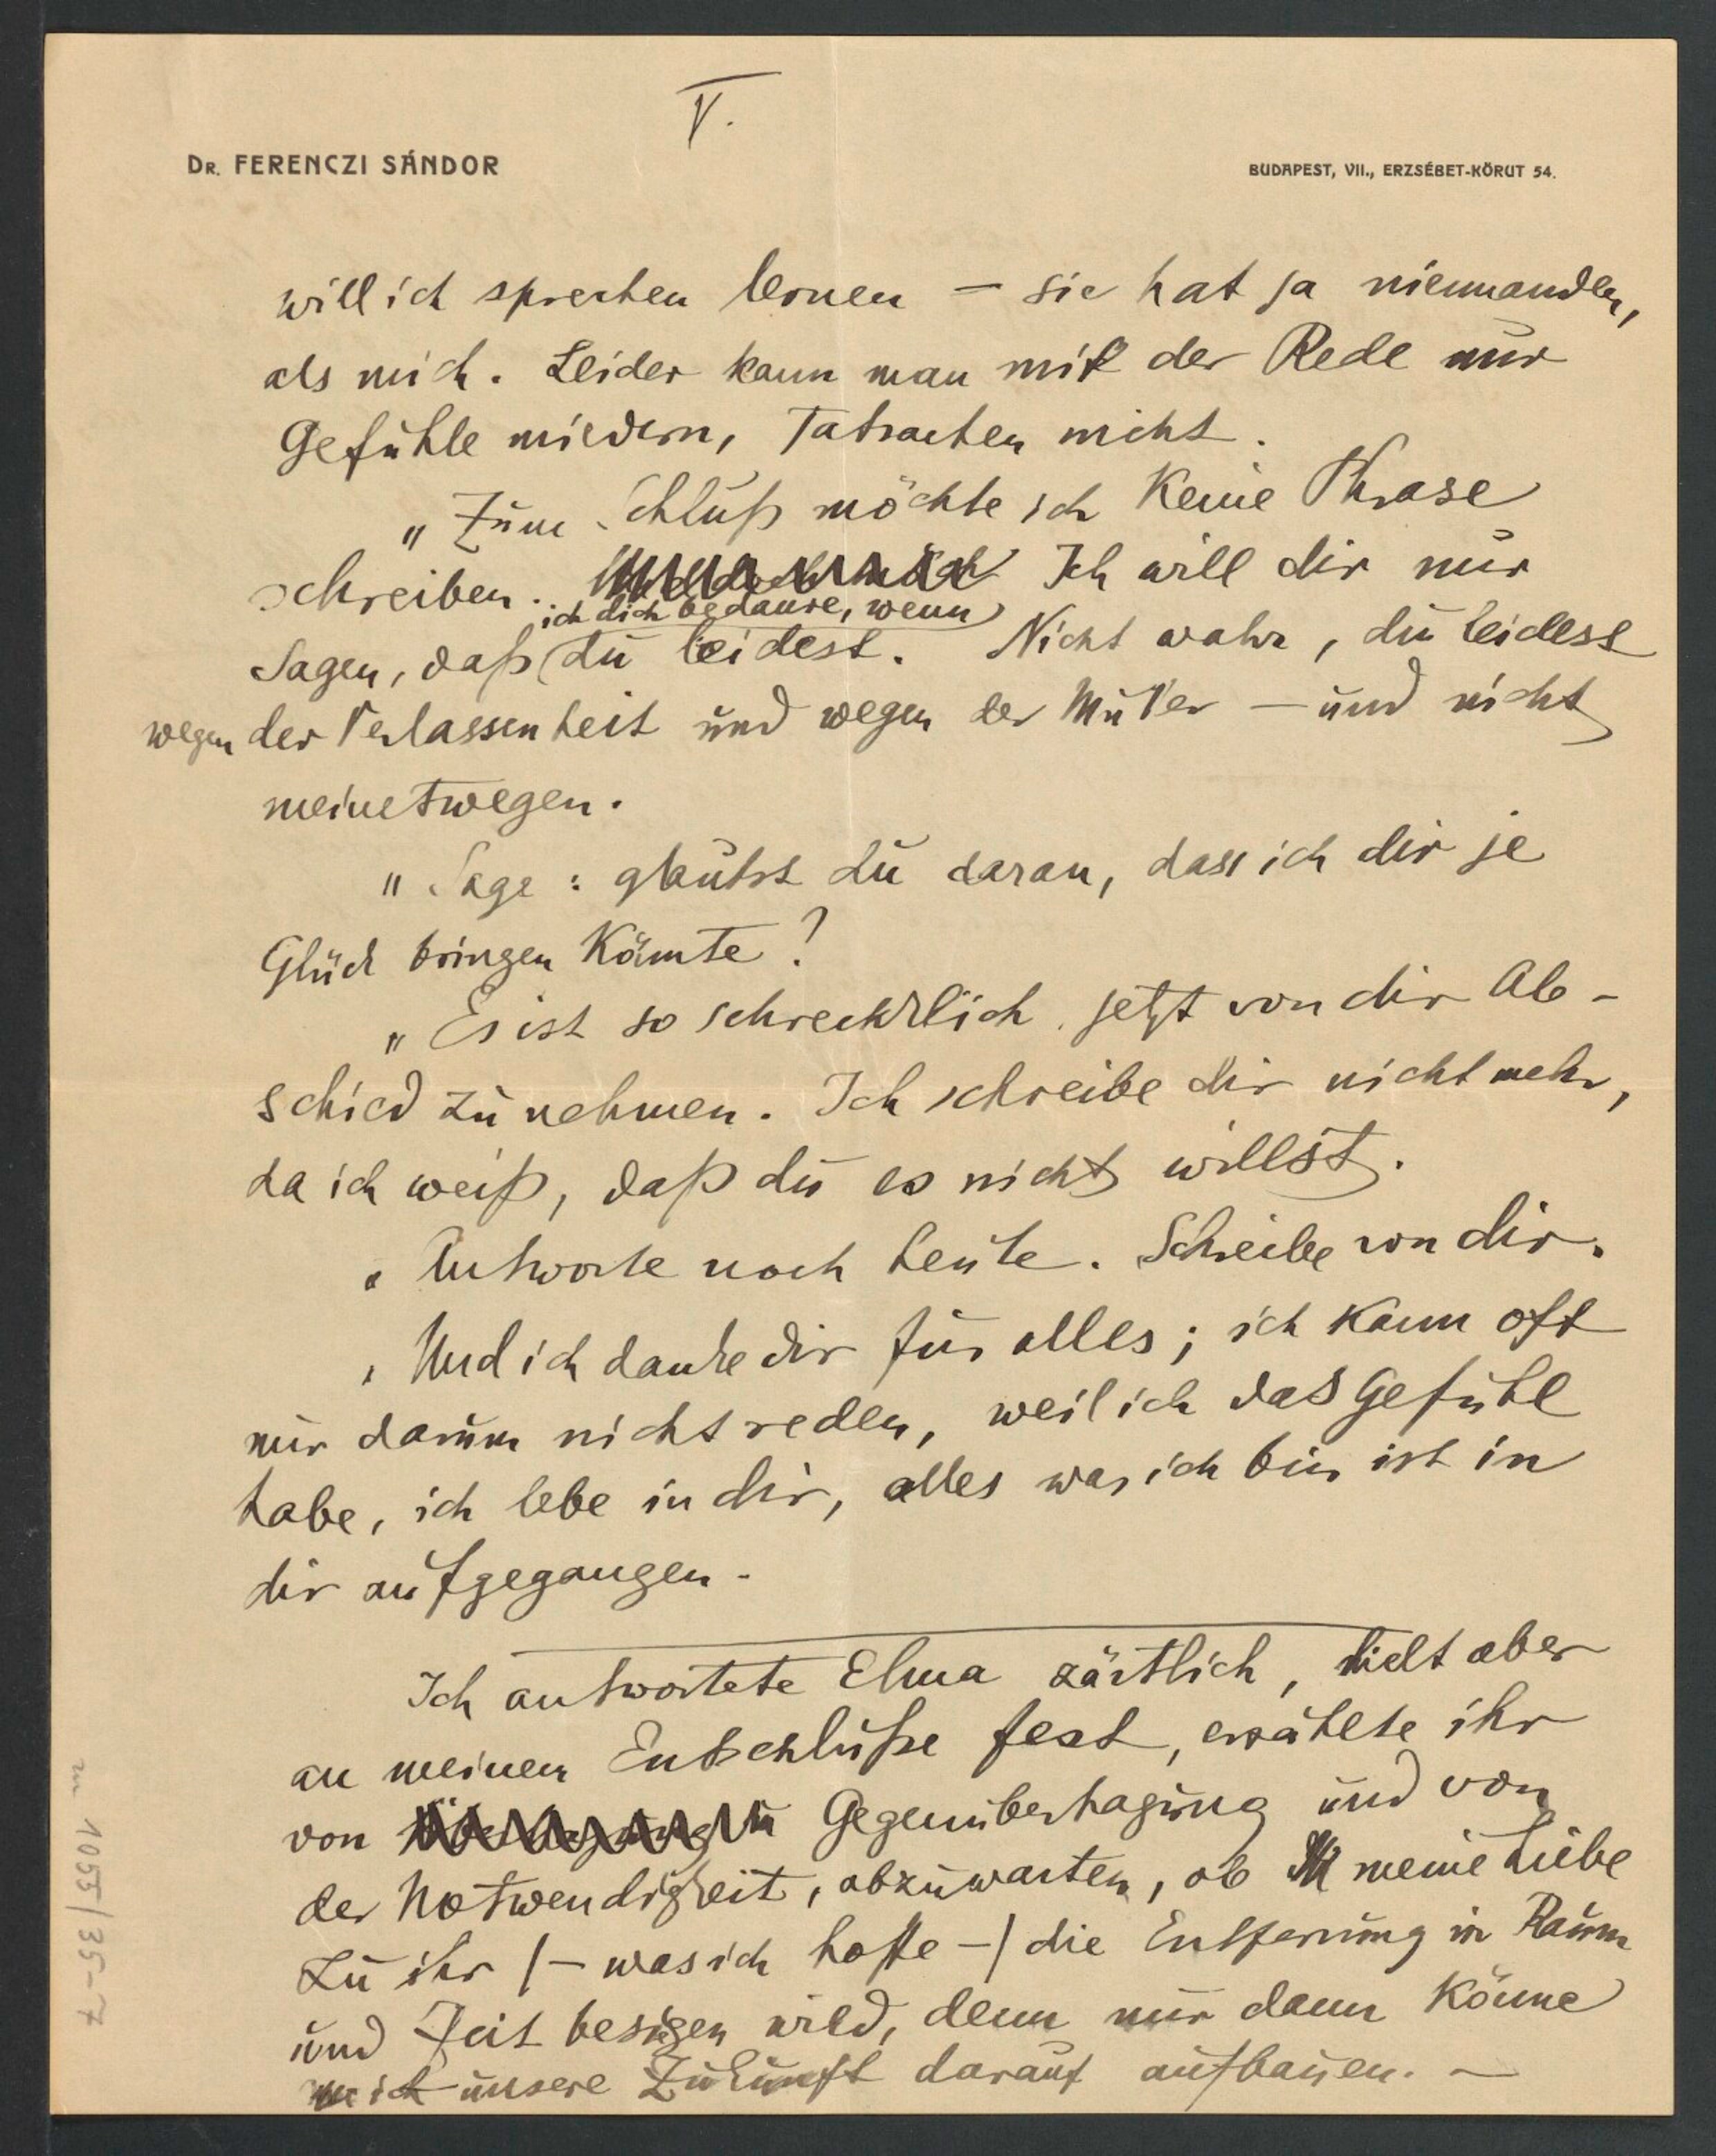 V.
DR. FERENCZI SÁNDOR
BUDAPEST, VII., ERZSÉBET-KÖRUT 54.
will ich sprechen lernen – sie hat ja niemanden,
als mich. Leider kann man mit der Rede nur
Gefühle mildern, Tatsachen nicht.
„Zum Schluß möchte ich keine Phrase
schreiben. Ich will dir nur
ich dich bedaure, wenn
Sagen, daß du leidest. Nicht wahr, du leidest
wegen der Verlassenheit und wegen der Mutter – und nicht
meinetwegen.
„Sage: glaubst du daran, dass ich dir je
Glück bringen könnte?
„Es ist so schrecklich jetzt von dir Ab-
schied zu nehmen. Ich schreibe dir nicht mehr,
da ich weiß, daß du es nicht willst.
„Antworte noch heute. Schreibe von dir.
„Und ich danke dir für alles; ich kann oft
nur darum nicht reden, weil ich das Gefühl
habe, ich lebe in dir, alles was ich bin ist in
dir aufgegangen.
Ich antwortete Elma zärtlich, hielt aber
an meinem Entschluße fest, erzählte ihr
von Gegenübertragung und von
der Notwendigkeit, abzuwarten, ob meine Liebe
zu ihr /– was ich hoffe –/ die Entfernung in Raum
und Zeit besiegen wird, denn nur dann könne
ich unsere Zukunft darauf aufbauen. –
1055/35-7